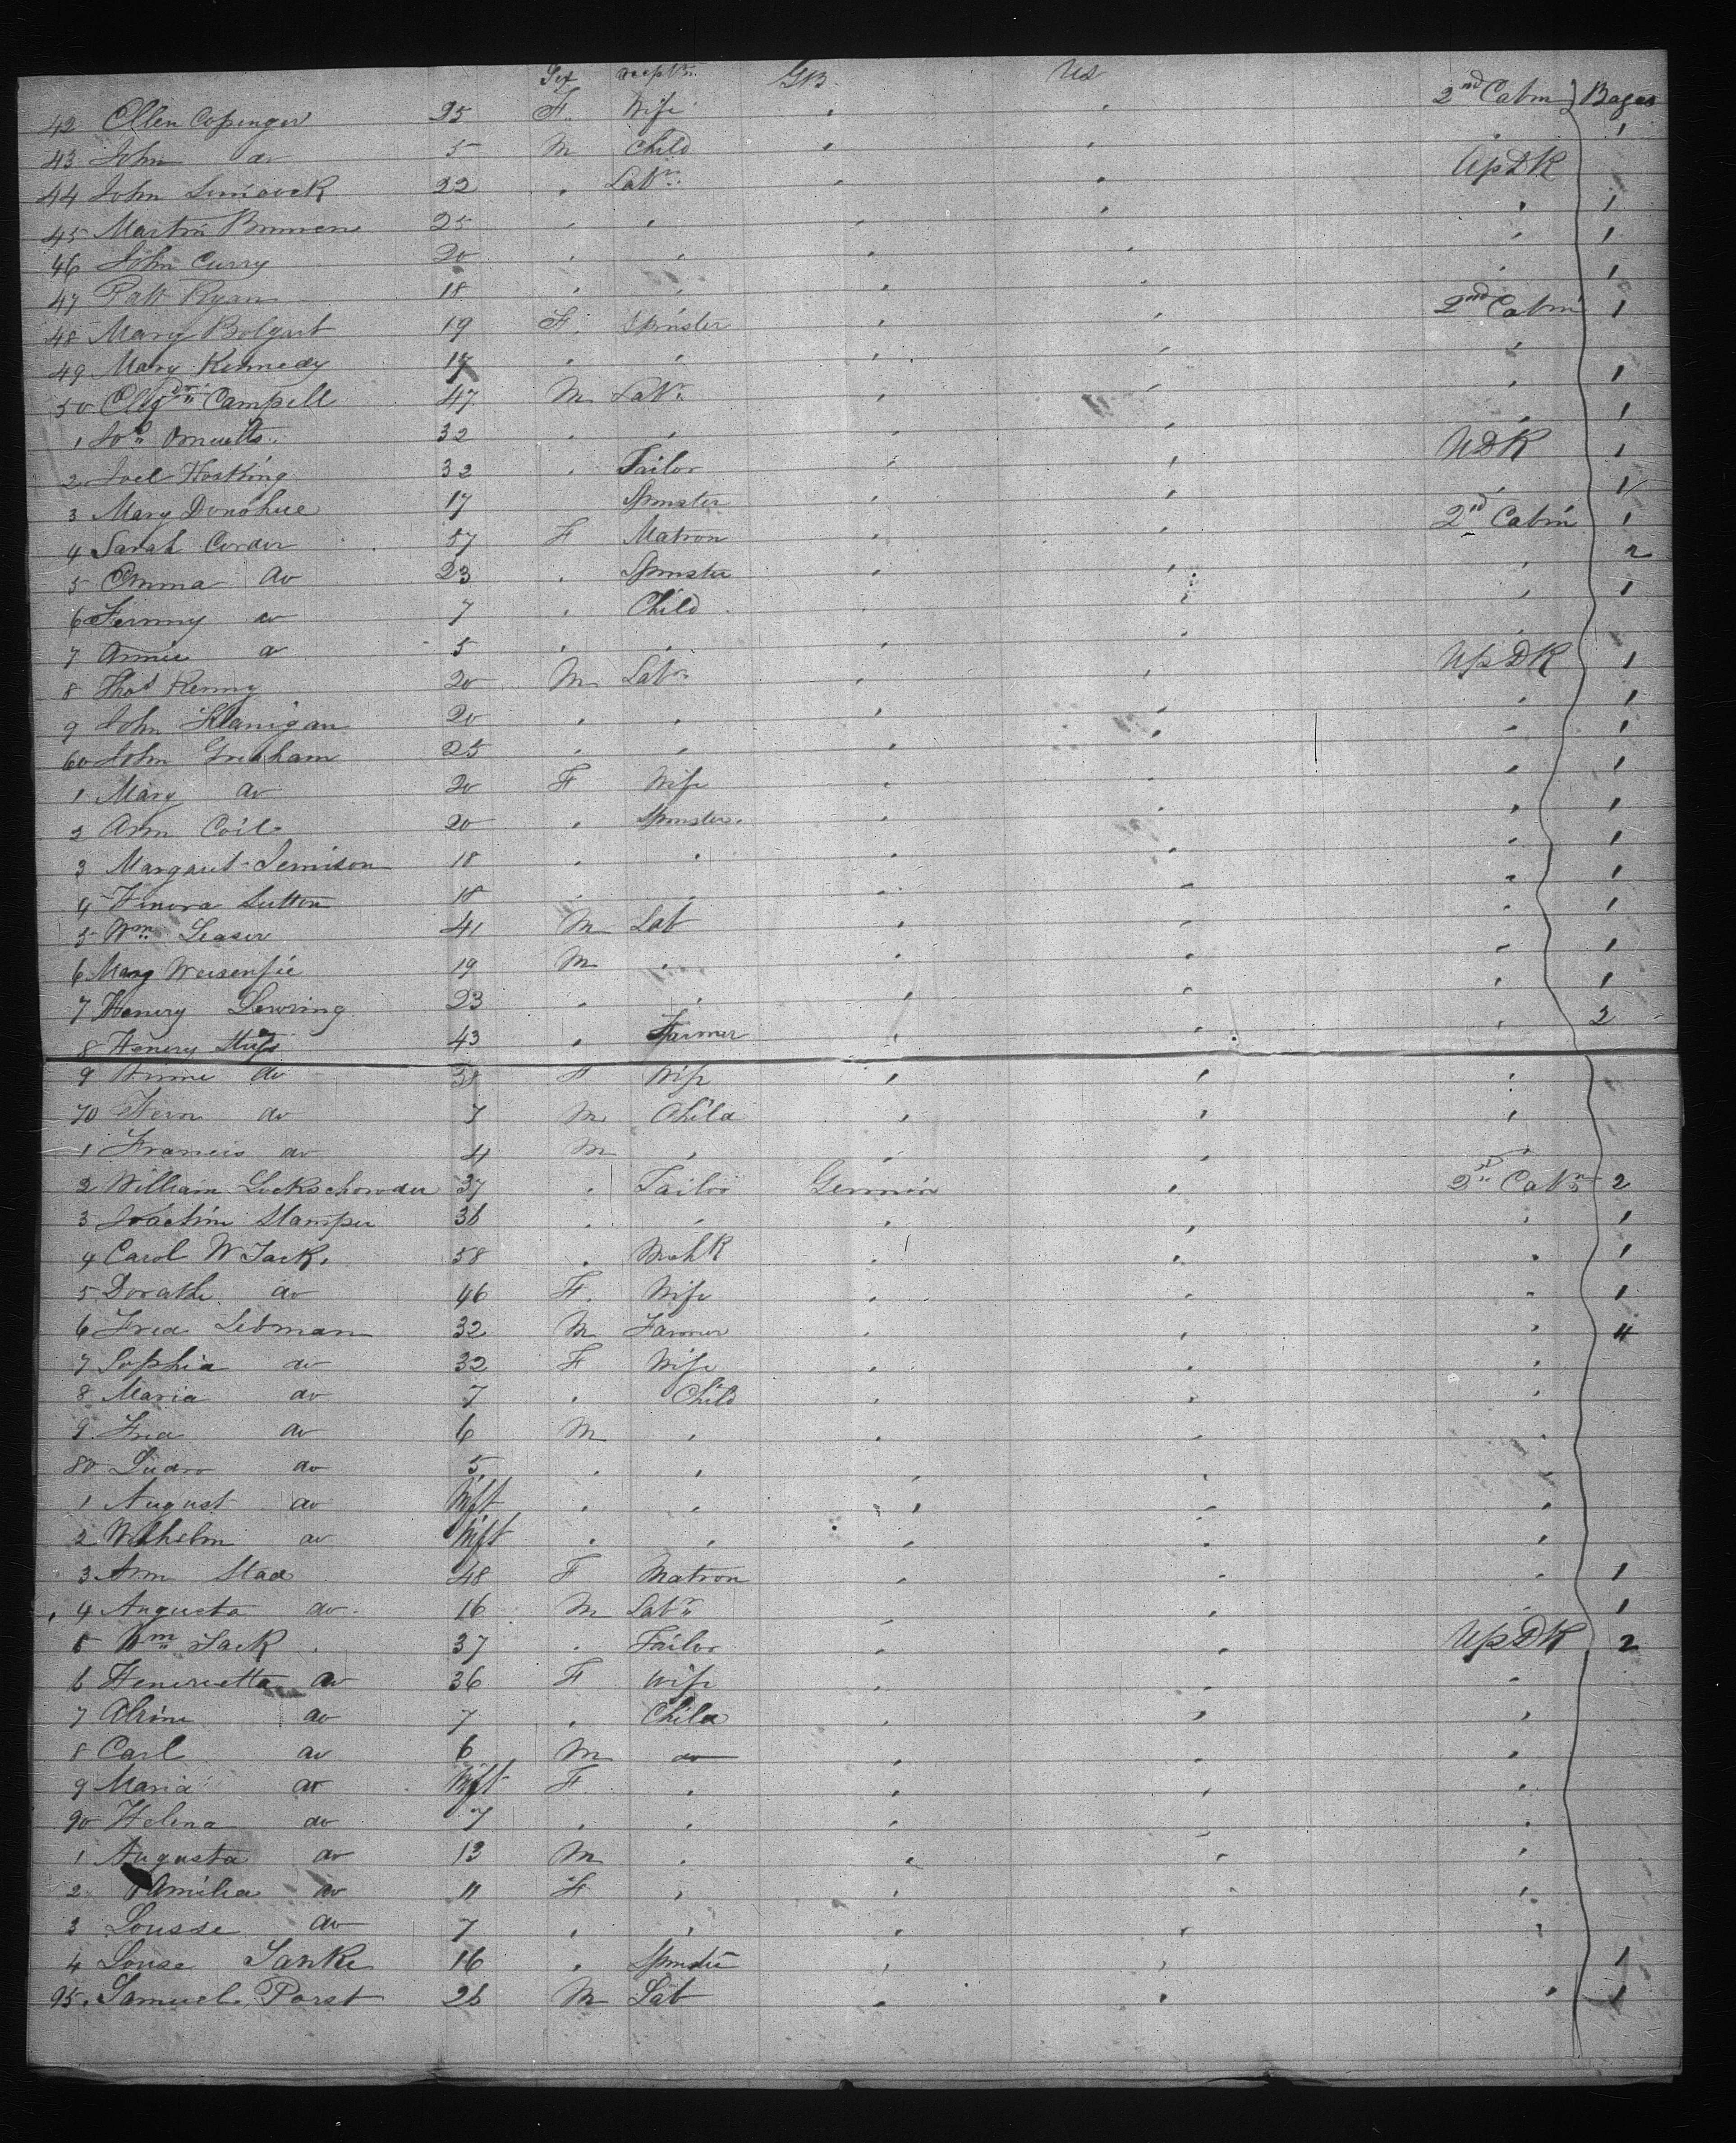 Sex Occupn. GB. US
42 Ellen Copinger 25 F. Wife 2nd Cabin Bages
43 John do 5 M Child 1
44 John 22 Labr. Up DK
45 Martin 25 1
46 John Curry 20 1
47 Patt Ryan 18 1
48 Mary Bolgart 19 F. Spinster 2nd Cabin 1
49 Mary Kennedy 17
50 Campell 47 M Labr. 1
1 32 1
2 Joel Hosking 32 Tailor UDK 1
3 Mary Donohue 17 Spinster 1
4 Sarah Corder 57 F Matron 2nd Cabin 1
5 Emma do 23 Spinster 2
6 do 7 Child 1
7 Annie do 5
8 Thos Kenny 20 M Labr Up DK 1
9 John Flanigan 20 1
60 John Greaham 25 1
1 Mary do 20 F Wife 1
2 Ann Coil 20 Spinster 1
3 Margaret Jemison 18 1
4 Sutton 18 1
5 Wm Leaser 41 M Lab 1
6 19 M 1
7 Henery 23 1
8 Henery 43 Farmer 2
9 do 38 F Wife
70 do 7 M Child
1 Francis do 4 M
2 William 37 Tailor German 2nd Cabn 2
3 Joachim Stamper 36 1
4 Carol W Jack. 58 1
5 Dorathe do 46 F. Wife 1
6 Fred Lebman 32 M Farmer 4
7 Sophia do 32 F Wife
8 Maria do 7 Child
9 Fred do 6 M
80 do 5
1 August do Inft
2 Wilhelm do Inft
3 Ann Stad 48 F Matron 1
4 Augusta do 16 M Labr 1
5 Wm Jack 37 Tailor Up DK 2
6 Henerietta do 36 F Wife
7 do 7 Child
8 Carl do 6 M do
9 Maria do Inft F
90 Helena do 7
1 Augusta do 13 M
2 Amilia do 11 F
3 Lousse do 7
4 Louse Janke 16 Spinster 1
95. Samuel Porst 26 M Lab 1